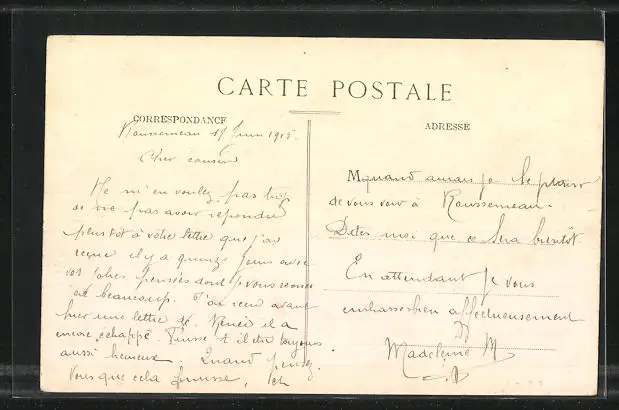 CARTE POSTALE
CORRESPONDANCE
Roussemeau 19 Juin 1915
Cher cousin
Ne m'en voulez pas trop
de ne pas avoir répondu
plus tôt à votre lettre que j'ai
reçue il y a quinze jours avec
vos jolies pensées dont je vous remercie
beaucoup. J'ai reçu avant
hier une lettre de René il a
encore échappé. Puisse t-il être toujours
aussi heureux. Quand pensez
vous que cela finisse, et
ADRESSE
M quand aurais je le plaisir
de vous voir à Roussemeau.
Dites moi que ce sera bientôt.
En attendant je vous
embrasse bien affectueusement
Madeleine M